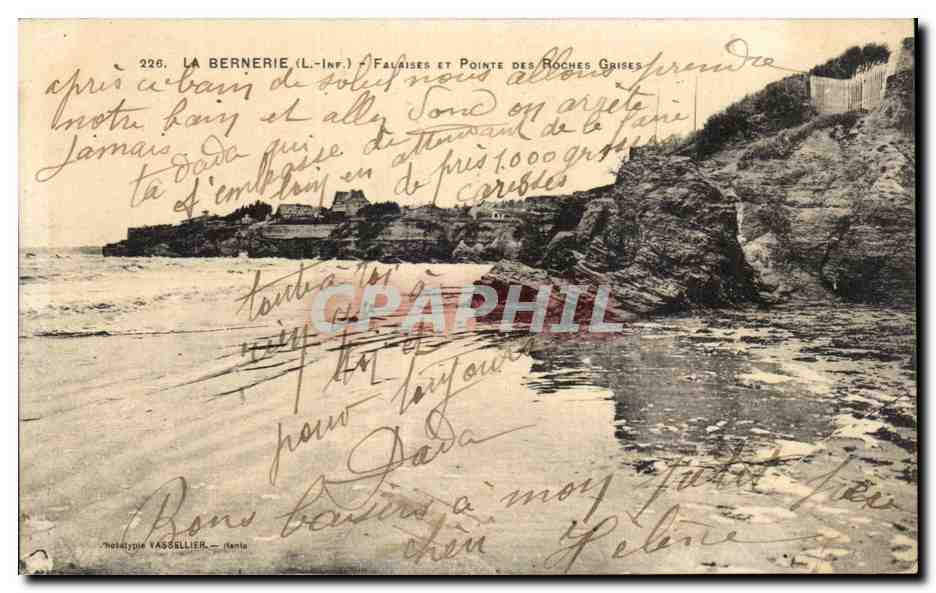 226. LA BERNERIE (L.-INF.) - FALAISES ET POINTE DES ROCHES GRISES
après ce bain de soleil nous allons prendre
notre bain et allez donc on arrête
jamais.
ta dada qui en attendant de le faire
t'embrasse de loin
de près 1.000 grosses
caresses
toute à toi
rien qu'à
toi et
pour toujours
Dada
Bons baisers à mon petit frère
chéri Hélène
Phototypie VASSELLIER. — Nantes
CPAPHIL